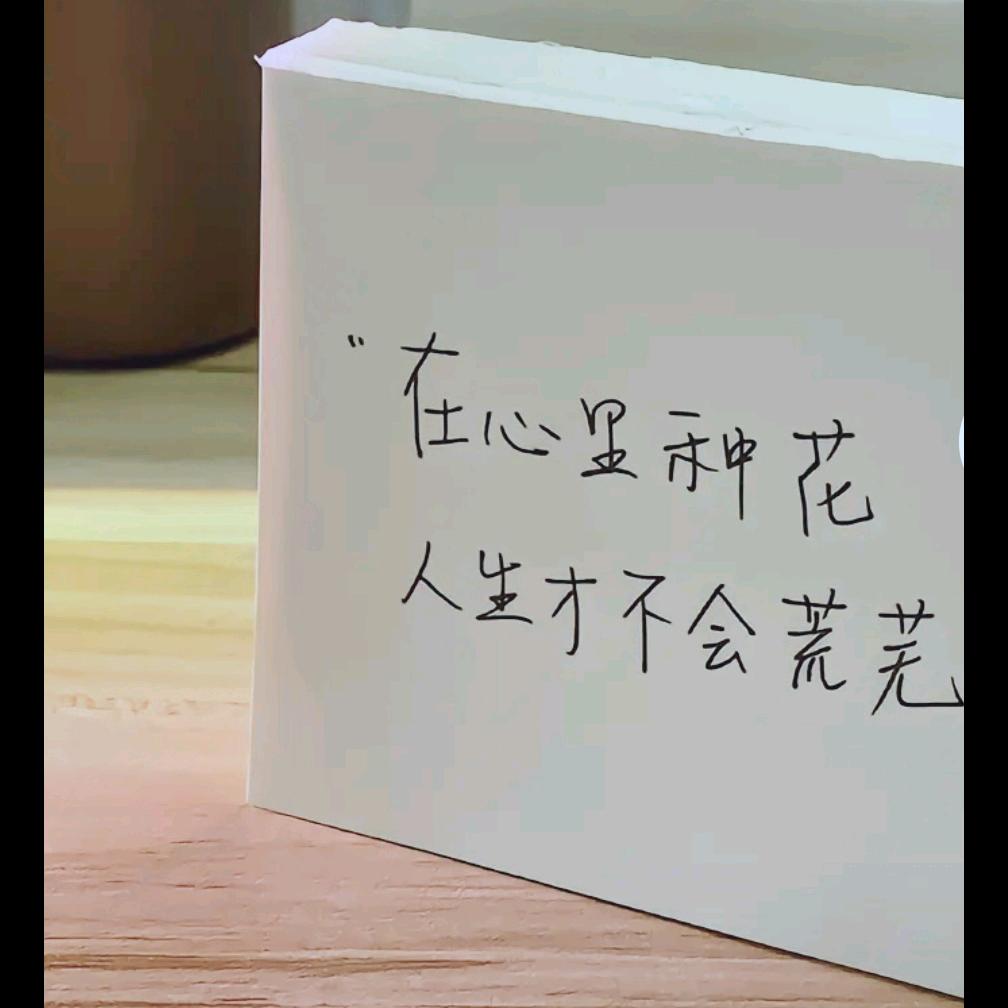 "在心里种花
人生才不会荒芜